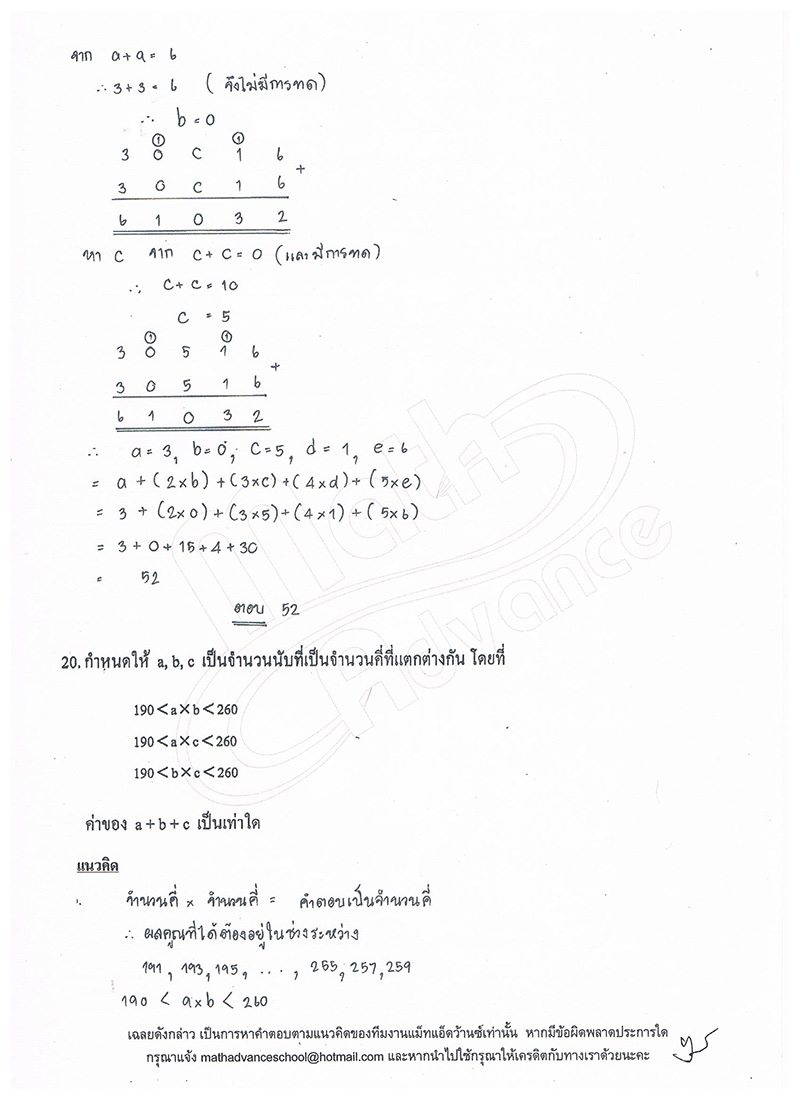 จาก a+a = 6
∴ 3+3 = 6 (จึงไม่มีการทด)
∴ b = 0
① ①
3 0 c 1 6
+
3 0 c 1 6
6 1 0 3 2
หา c จาก c+c = 0 (และมีการทด)
∴ c+c = 10
c = 5
① ①
3 0 5 1 6
+
3 0 5 1 6
6 1 0 3 2
∴ a = 3, b = 0, c = 5, d = 1, e = 6
= a + (2×b) + (3×c) + (4×d) + (5×e)
= 3 + (2×0) + (3×5) + (4×1) + (5×6)
= 3 + 0 + 15 + 4 + 30
= 52
ตอบ 52
Math Advance
20. กำหนดให้ a, b, c เป็นจำนวนนับที่เป็นจำนวนคี่ที่แตกต่างกัน โดยที่
190<a×b<260
190<a×c<260
190<b×c<260
ค่าของ a+b+c เป็นเท่าใด
แนวคิด
∵ จำนวนคี่ × จำนวนคี่ = คำตอบเป็นจำนวนคี่
∴ ผลคูณที่ได้ต้องอยู่ในช่วงระหว่าง
191, 193, 195, ..., 255, 257, 259
190 < a×b < 260
เฉลยดังกล่าว เป็นการหาคำตอบตามแนวคิดของทีมงานแม็ทแอ็ดว้านซ์เท่านั้น หากมีข้อผิดพลาดประการใด
กรุณาแจ้ง mathadvanceschool@hotmail.com และหากนำไปใช้กรุณาให้เครดิตกับทางเราด้วยนะคะ